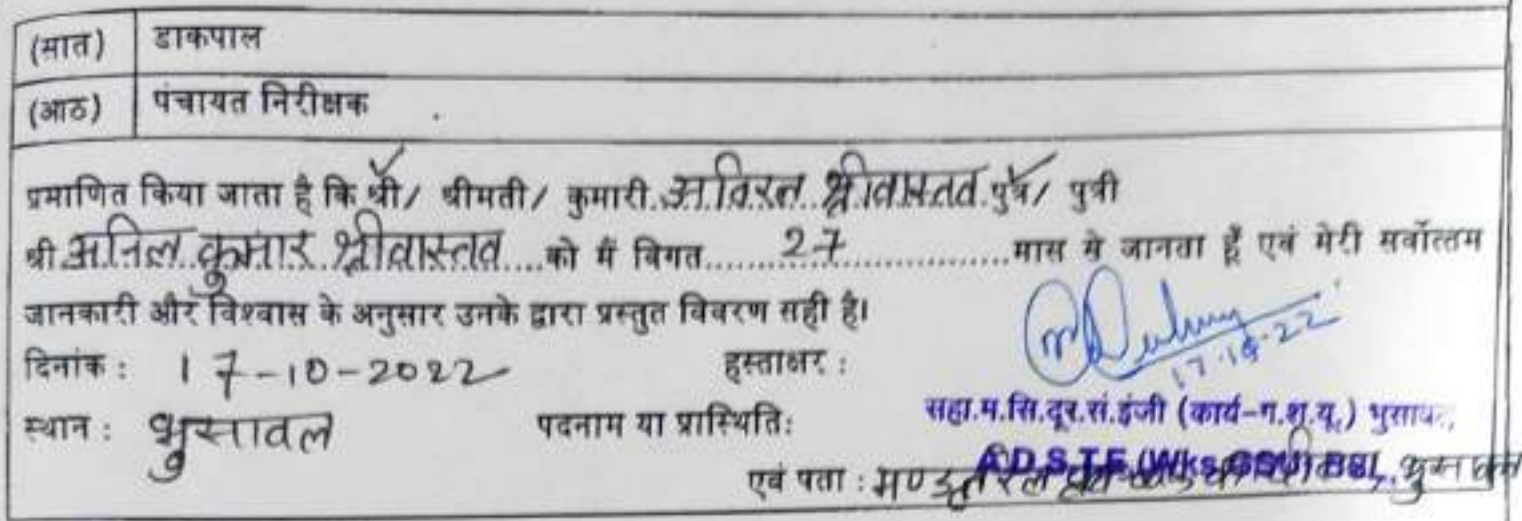 (सात) डाकपाल
(आठ) पंचायत निरीक्षक
प्रमाणित किया जाता है कि श्री/ श्रीमती/ कुमारी..अविरल श्रीवास्तव.पुत्र/ पुत्री
श्री अनिल कुमार श्रीवास्तव....को मैं विगत......27..............मास से जानता हूँ एवं मेरी सर्वोत्तम
जानकारी और विश्वास के अनुसार उनके द्वारा प्रस्तुत विवरण सही है।
दिनांक : 17-10-2022 हस्ताक्षर :
17-10-22
स्थान : भुसावल पदनाम या प्रास्थिति: सहा.म.सि.दूर.सं.इंजी (कार्य-ग.श.यू.) भुसावल,
A.D.S.T.E.(Wks.GSU) BSL
एवं पता : मण्डल रेल भुसावल